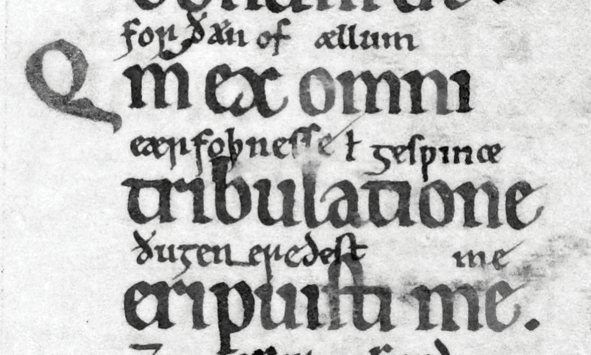 for ðæn of ællum
Qm̄ ex omni
eærfoþnesse ł geswince
tribulatione
ðu gen eredest me
eripuisti me.